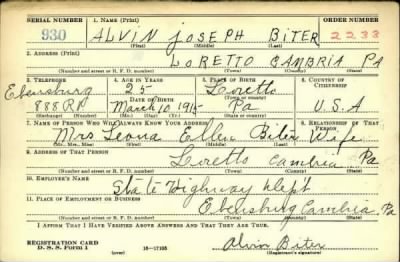 SERIAL NUMBER 1. NAME (Print) ORDER NUMBER
930 ALVIN JOSEPH BITER 2238
(First) (Middle) (Last)
2. ADDRESS (Print)
LORETTO CAMBRIA PA
(Number and street or R. F. D. number) (Town) (County) (State)
3. TELEPHONE 4. AGE IN YEARS 5. PLACE OF BIRTH 6. COUNTRY OF CITIZENSHIP
Ebensburg 25 Loretto
DATE OF BIRTH (Town or county)
888R1 March 10 1915 Pa U.S.A
(Exchange) (Number) (Mo.) (Day) (Yr.) (State or country)
7. NAME OF PERSON WHO WILL ALWAYS KNOW YOUR ADDRESS 8. RELATIONSHIP OF THAT PERSON
Mrs Leona Ellen Biter Wife
(Mr., Mrs., Miss) (First) (Middle) (Last)
9. ADDRESS OF THAT PERSON
Loretto Cambria Pa
(Number and street or R. F. D. number) (Town) (County) (State)
10. EMPLOYER'S NAME
State Highway Dept
11. PLACE OF EMPLOYMENT OR BUSINESS
Ebensburg Cambria Pa
(Number and street or R. F. D. number) (Town) (County) (State)
I AFFIRM THAT I HAVE VERIFIED ABOVE ANSWERS AND THAT THEY ARE TRUE.
REGISTRATION CARD
D. S. S. Form 1 16-17105 Alvin Biter
(Registrant's signature)